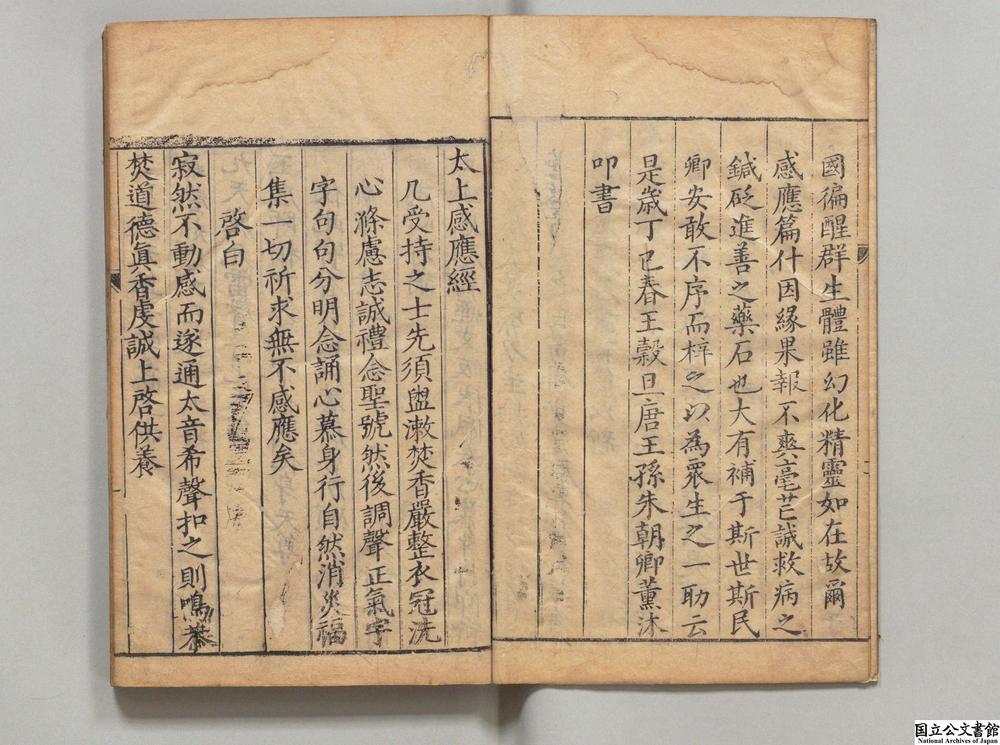 國徧醒群生體雖幻化精靈如在故爾
感應篇什因緣果報不爽毫芒誠救病之
鍼砭進善之藥石也大有補于斯世斯民
卿安敢不序而梓之以為衆生之一助云
是歲丁巳春王榖旦唐王孫朱朝卿薰沐
叩書
太上感應經
凡受持之士先須盥漱焚香嚴整衣冠洗
心滌慮志誠禮念聖號然後調聲正氣字
字句句分明念誦心慕身行自然消災福
集一切祈求無不感應矣
啓白
寂然不動感而遂通太音希聲扣之則鳴恭
焚道德眞香虔誠上啓供養
国立公文書館
National Archives of Japan